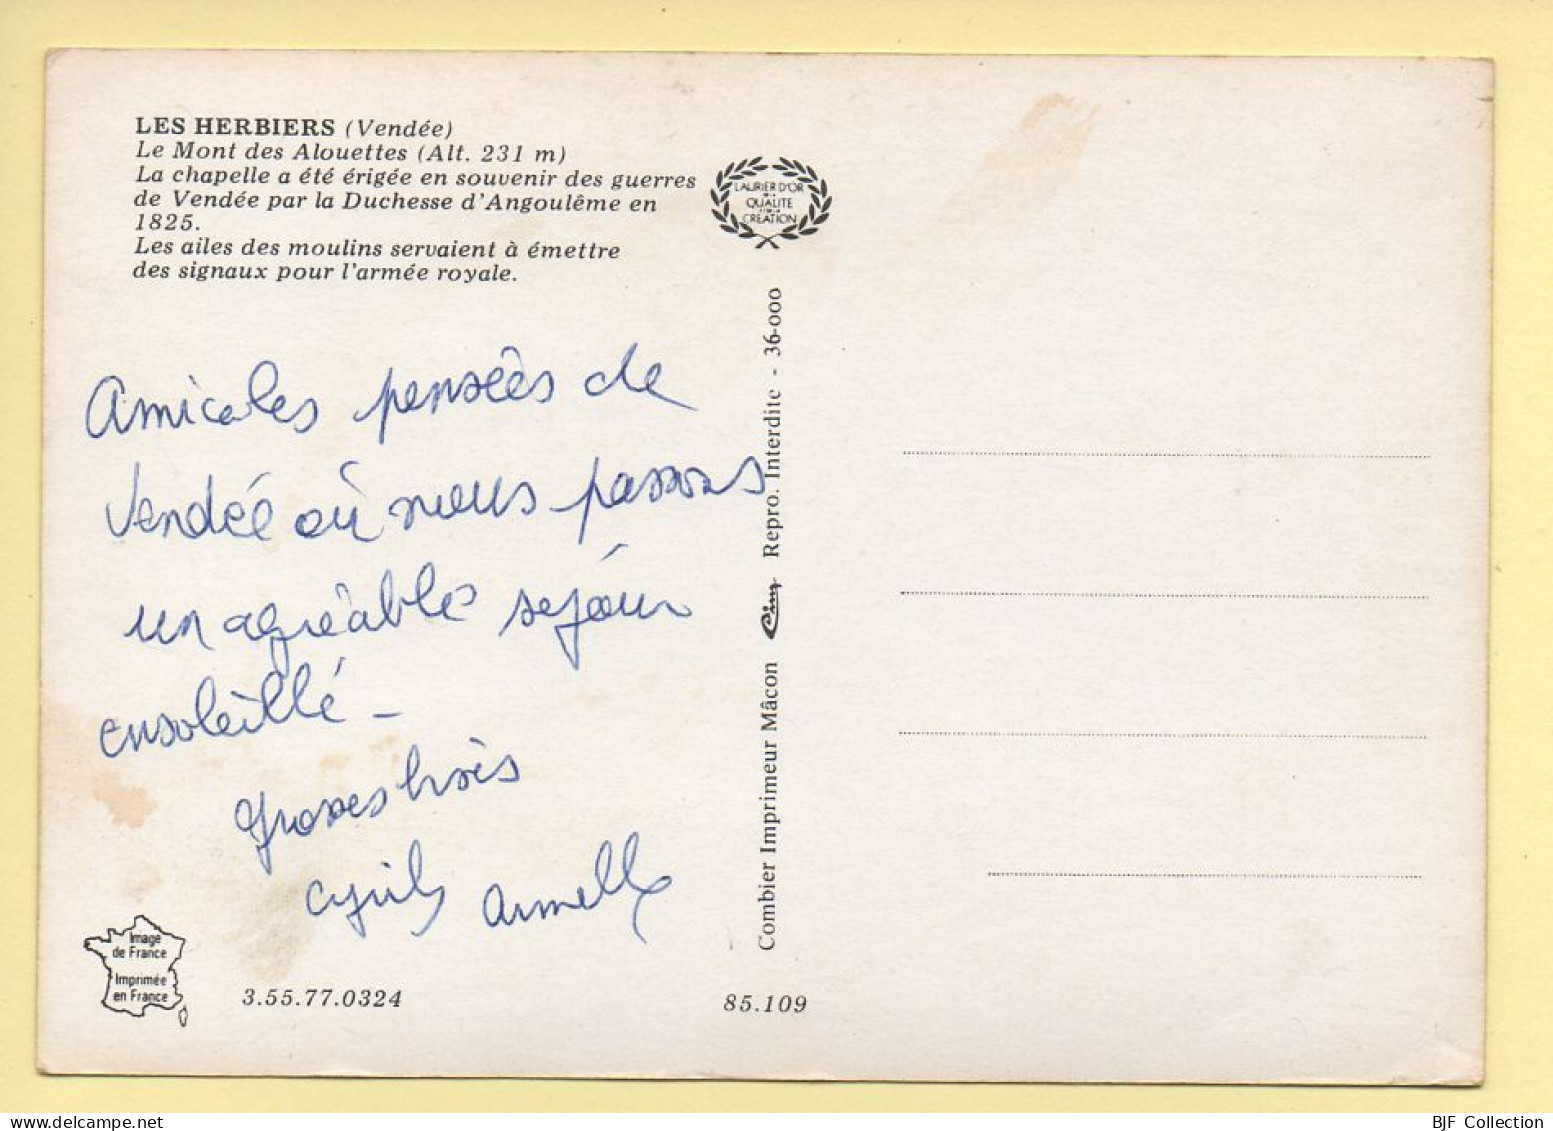 LES HERBIERS (Vendée)
Le Mont des Alouettes (Alt. 231 m)
La chapelle a été érigée en souvenir des guerres
de Vendée par la Duchesse d'Angoulême en
1825.
Les ailes des moulins servaient à émettre
des signaux pour l'armée royale.
LAURIER D'OR
QUALITE
CREATION
Amicales pensées de
Vendée où nous passons
un agréable séjour
ensoleillé -
Grosses bises
Cyril Armelle
Combier Imprimeur Mâcon Cim Repro. Interdite - 36-000
Image
de France
Imprimée
en France
3.55.77.0324
85.109
delcampe.net
BJF Collection